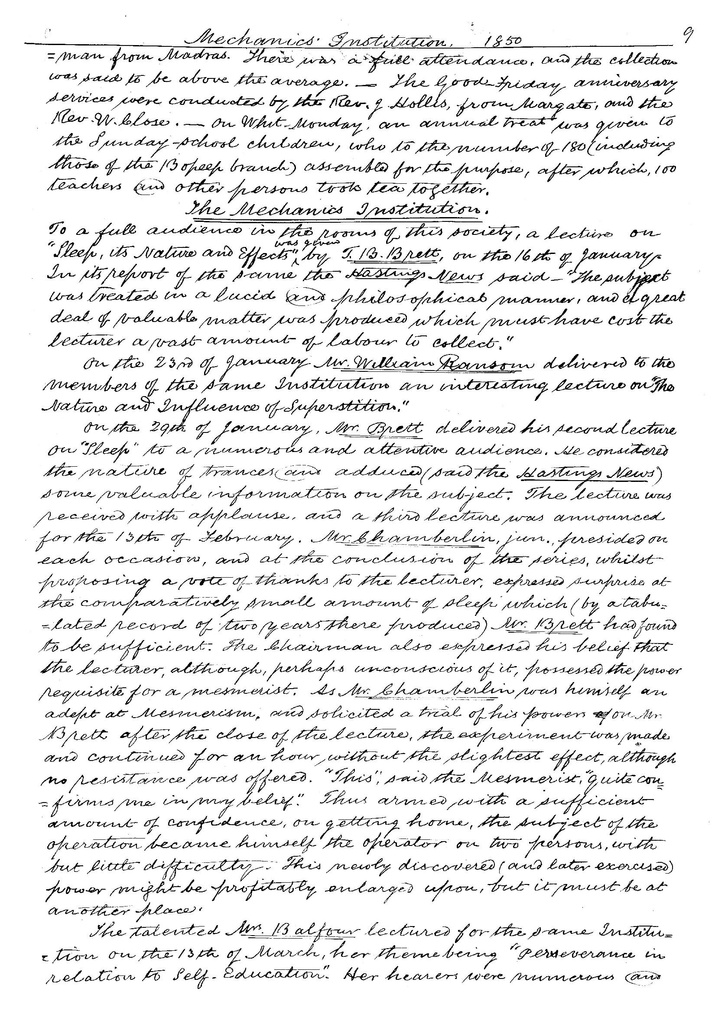 Mechanics' Institution. 1850 9
=man from Madras. There was a full attendance, and the collection
was said to be above the average. — The Good-Friday anniversary
services were conducted by the Rev. J Hollis, from Margate, and the
Rev. W. Close. — On Whit-Monday, an annual treat was given to
the Sunday-school children, who to the number of 180 (including
those of the Bopeep branch) assembled for the purpose, after which, 100
teachers and other persons took tea together.
The Mechanics Institution.
To a full audience in the rooms of this society, a lecture on
"Sleep, its Nature and Effects", was given by T. B. Brett, on the 16th of January.
In its report of the same the Hastings News said — "The subject
was treated in a lucid and philosophical manner, and a great
deal of valuable matter was produced which must have cost the
lecturer a vast amount of labour to collect."
On the 23rd of January Mr. William Ransom delivered to the
members of the same Institution an interesting lecture on "The
Nature and Influence of Superstition."
On the 29th of January, Mr. Brett delivered his second lecture
on "Sleep" to a numerous and attentive audience. He considered
the nature of trances and adduced (said the Hastings News)
some valuable information on the subject. The lecture was
received with applause, and a third lecture was announced
for the 13th of February. Mr. Chamberlin, jun., presided on
each occasion, and at the conclusion of the series, whilst
proposing a vote of thanks to the lecturer, expressed surprise at
the comparatively small amount of sleep which (by a tabu-
=lated record of two years there produced) Mr. Brett had found
to be sufficient. The Chairman also expressed his belief that
the lecturer, although, perhaps unconscious of it, possessed the power
requisite for a mesmerist. As Mr. Chamberlin was himself an
adept at Mesmerism, and solicited a trial of his power on Mr.
Brett after the close of the lecture, the experiment was made
and continued for an hour, without the slightest effect, although
no resistance was offered. "This", said the Mesmerist, "quite con=
=firms me in my belief." Thus armed with a sufficient
amount of confidence, on getting home, the subject of the
operation became himself the operator on two persons, with
but little difficulty. This newly discovered (and later exercised)
power might be profitably enlarged upon, but it must be at
another place.
The talented Mrs. Balfour lectured for the same Institu=
=tion on the 13th of March, her theme being "Perseverance in
relation to Self-Education". Her hearers were numerous and